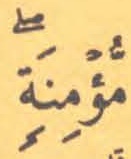 مُّؤْمِنَةٍۖ